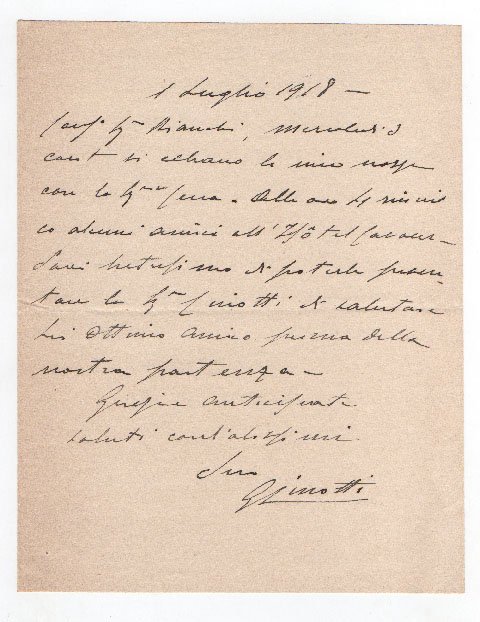 1 Luglio 1918 —
Sig. Bianchi, Mercoledì 3
corrt. si celebrano le mie nozze
con la Sig.na - Alle ore 4 riunis
co alcuni amici all'Hôtel Cavour -
Sarei lietissimo di poterle presen-
tare la Sig.ra Ginotti e di salutare
Lei ottimo amico prima della
nostra partenza -
Grazie anticipate
saluti cordialissimi
Suo
G Ginotti